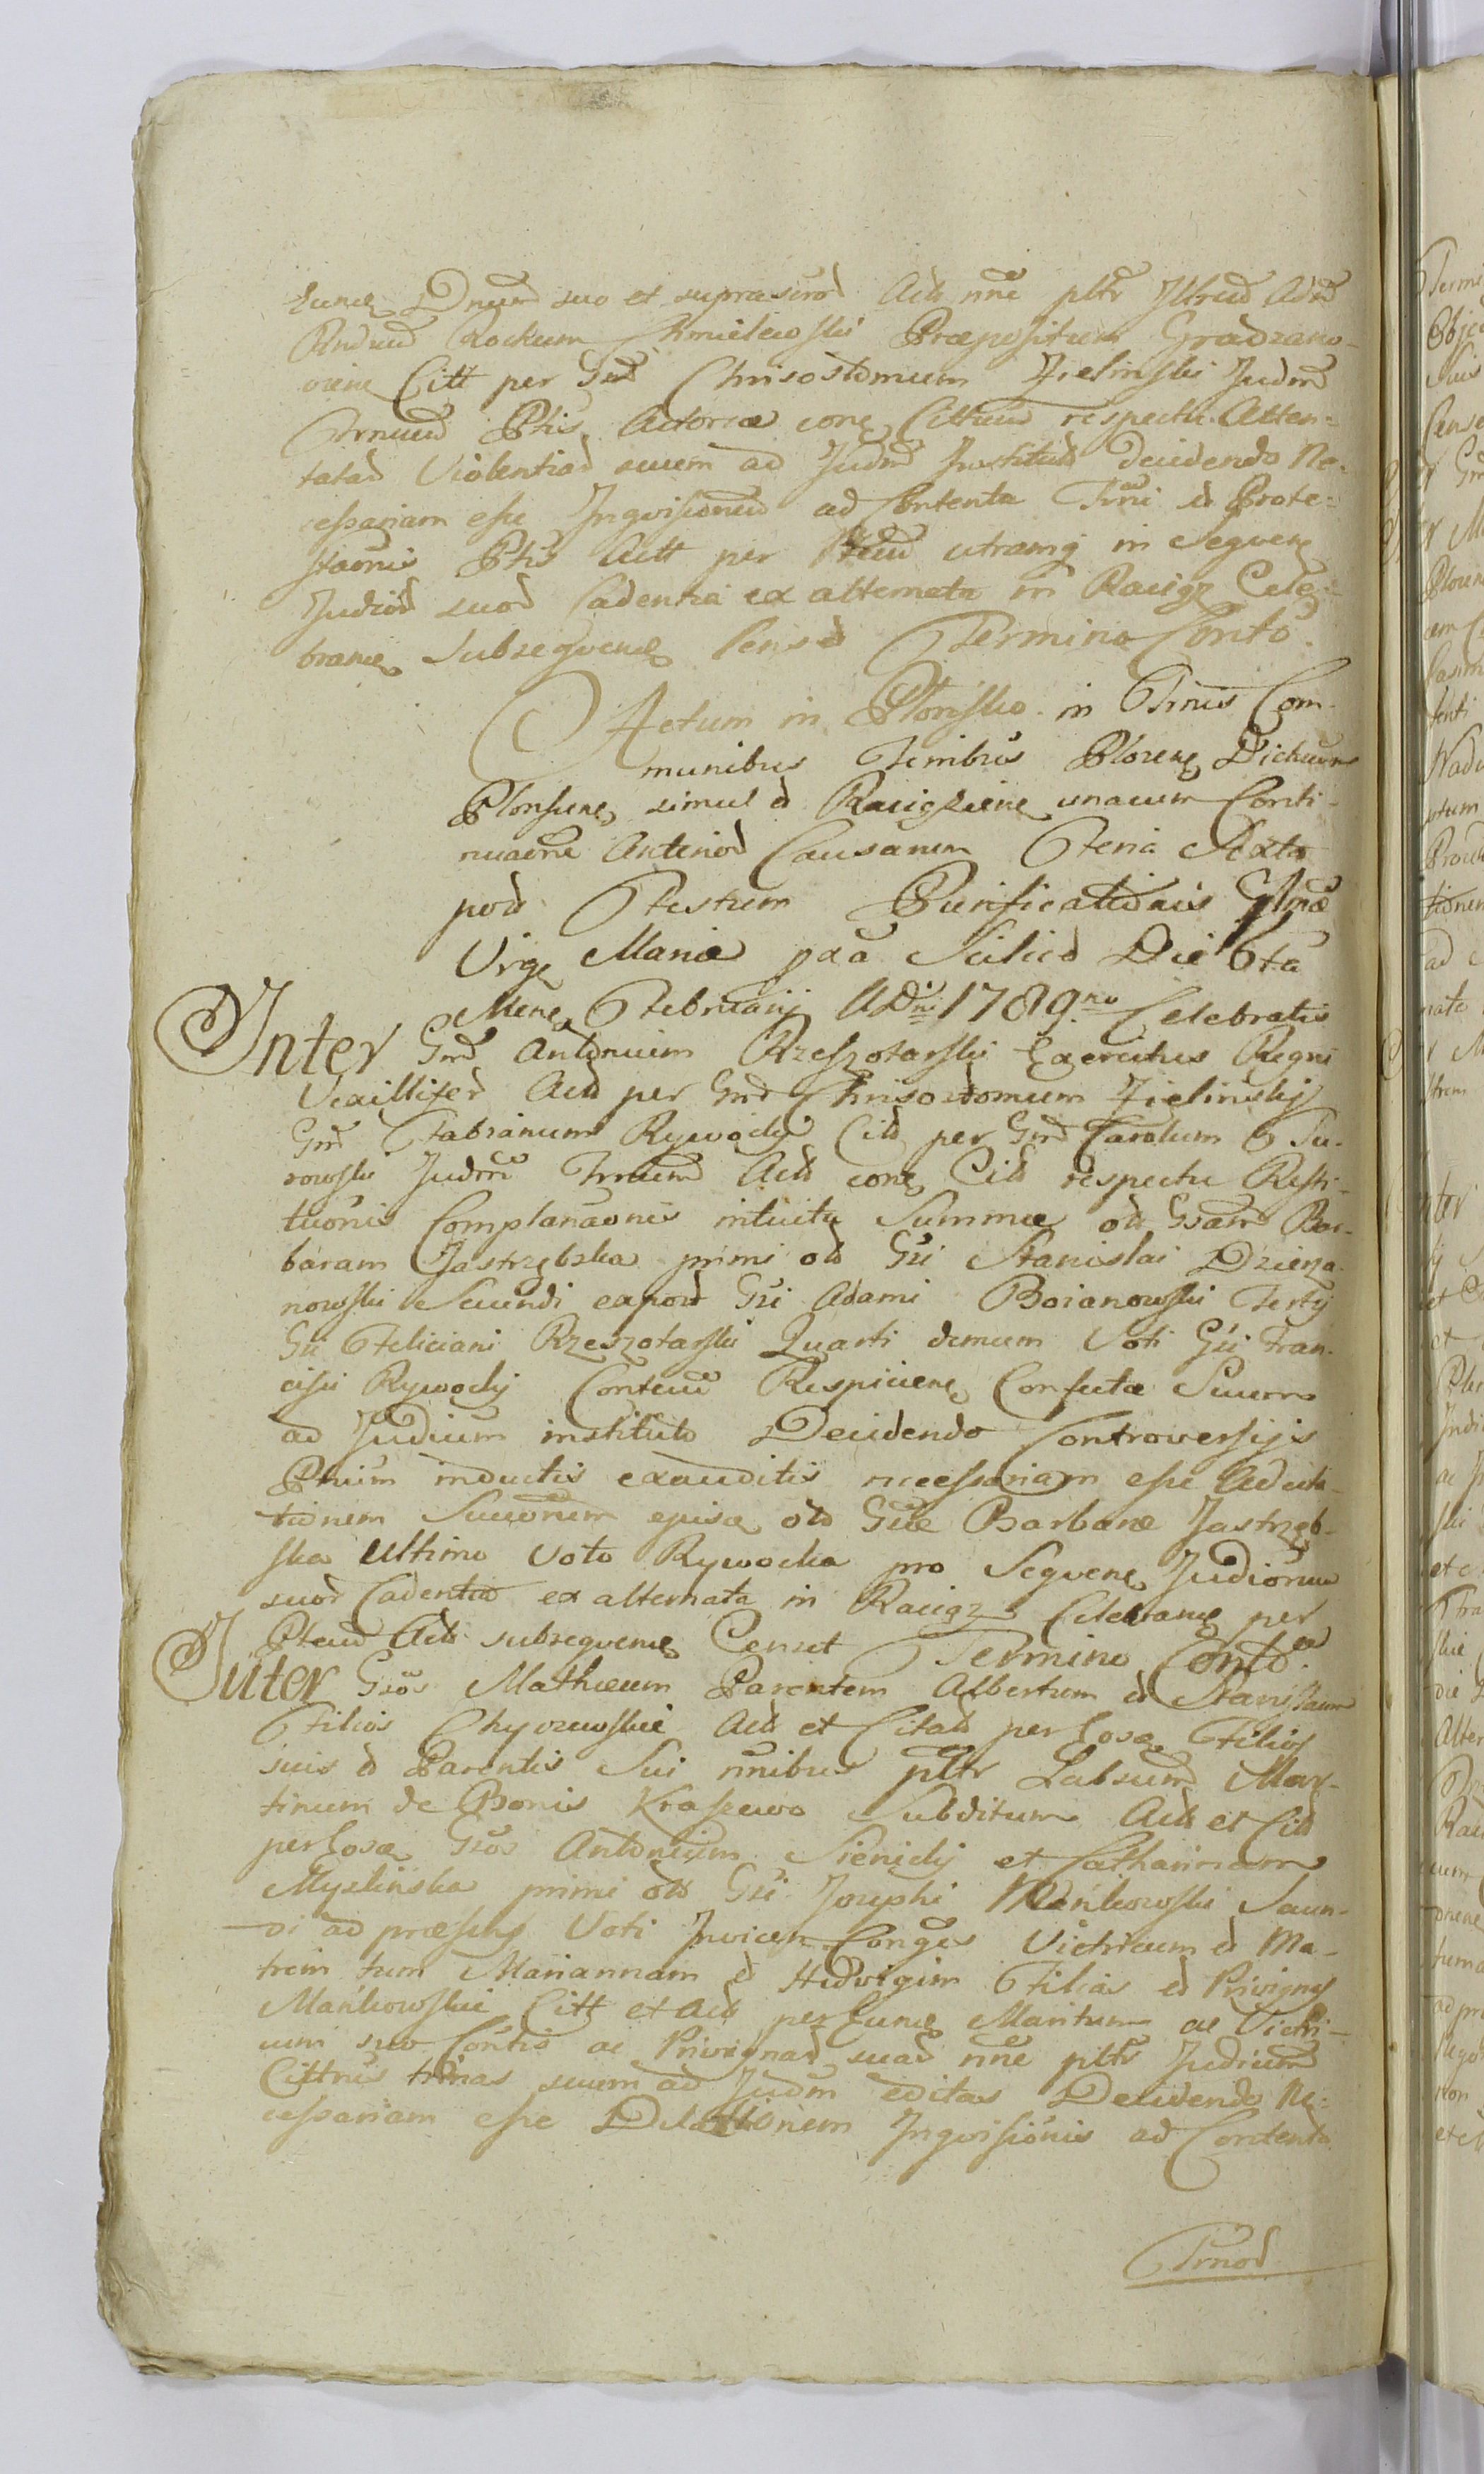 Eunq Dnum suo et suprascrod Actt nne pltr Illrud Adm
Rndum Rochum Chmielewski Præpositum Gradzano-
viene Citt per Gnd Chrisostomum Zielinski Judm
Trnum Ptis Actoreæ conq Cittum respectu Atten-
tatad Violentiad suum ad Judm Institutd decidendo Ne-
cessariam esse Inqvisitionem ad Contenta Trni et Prote-
staonis Ptis Actt per Ptem utramq in Seqvenq
Judiciod suod Cadentia ex alternata in Raciąz Cele-
branq Subseqvenq Censed Termino Conto.
Actum in Płońsko in Trnis Com-
munibus Ttrnibus Plocenq Districtuum
Plonscenq simul et Raciąznenq unacum Conti-
nuaone Anteriod Causarum Feria Sexta
post Festum Purificationis Glmæ
Virgq Mariæ pxa Scilicd Die 6ta
Mensq Februarij ADni 1789no Celebratis
Inter Gnd Antonium Rzeszotarski Exercitus Regni
Vexilliferd Actd per Gnd Chrisostomum Zielinskij
Gnd Fabianum Rywocky Citd per Gnd Carolum Tu-
rowski Judm Trnum Actd conq Citd respectu Resti-
tuonis Complanaonis intuitu Summæ od Gsam Bar-
baram Jastrzębska primi od Gsi Stanislai Dzierza-
nowski Secundi expost Gsi Adami Boianowski Tertij
Gsi Feliciani Rzeszotarski Quarti demum Voti Gsi Fran-
cisci Rywocky Contecm Respicienq Confectæ Suum
ad Judicium institutd Decidendo Controversijs
Ptium inductis exauditis necessariam esse Adcita-
tionem Succonum episæ old Gsæ Barbaræ Jastrzęb-
ska Ultimo Voto Rywocka pro Seqvenq Judiciorum
suod Cadentiæ ex alternata in Raciąz Celebranq per
Ptem Actd subseqvenq Censet Termino Contoea
Inter Gsos Mathæum Parentem Albertum et Stanislaum
Filios Chyczewskie Actd et Citad per Eosdq Filios
suis et Parentis Sui nnibus pltr Labsum Mar-
tinum de Bonis Kraszewo Subditum Actd et Citd
per Eosdq Gsos Antonium Sienicky et Catharinam
Myslinska primi old Gsi Josephi Mańkowski Secun-
di ad præsens Voti Invicem Conges Victricum et Ma-
trem tum Mariannam et Hedvigim Filias et Privignas
Mańkowskie Citt et Actd per Eunq Maritum ac Vitri-
cum suo Contis ac Privignad suad nne pltr Judicium
Cittnis trinas suum ad Judm editas Decidendo Ne-
cessariam esse Dilationem Inqvisitionis ad Contenta
Trnod